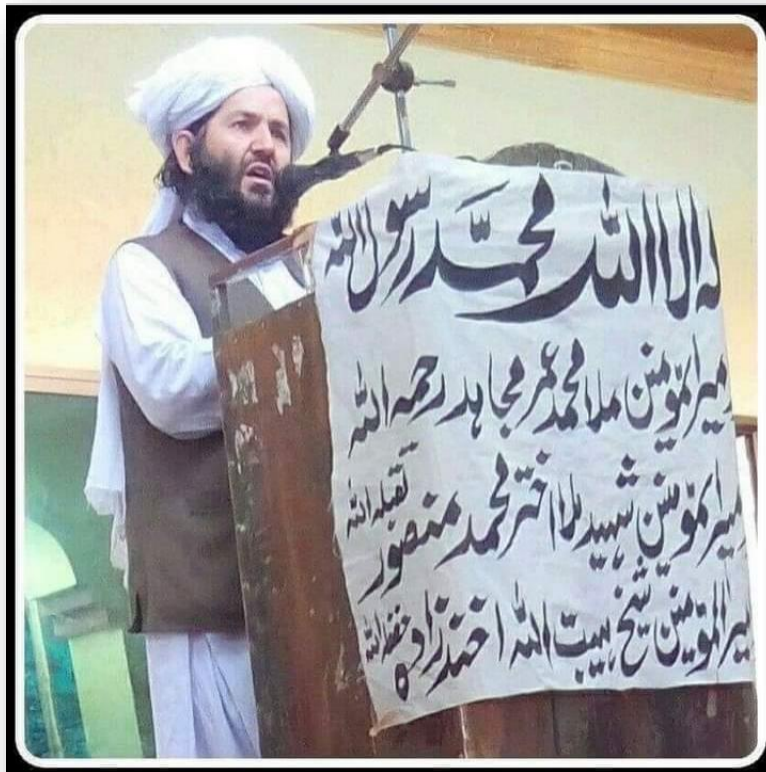 لہ الا اللہ محمد رسول اللہ
میرالمؤمنین ملا محمد عمر مجاہد رحمہ اللہ
میرالمؤمنین شہید ملا اختر محمد منصور تقبلہ اللہ
میرالمؤمنین شیخ ہیبت اللہ اخندزادہ حفظہ اللہ